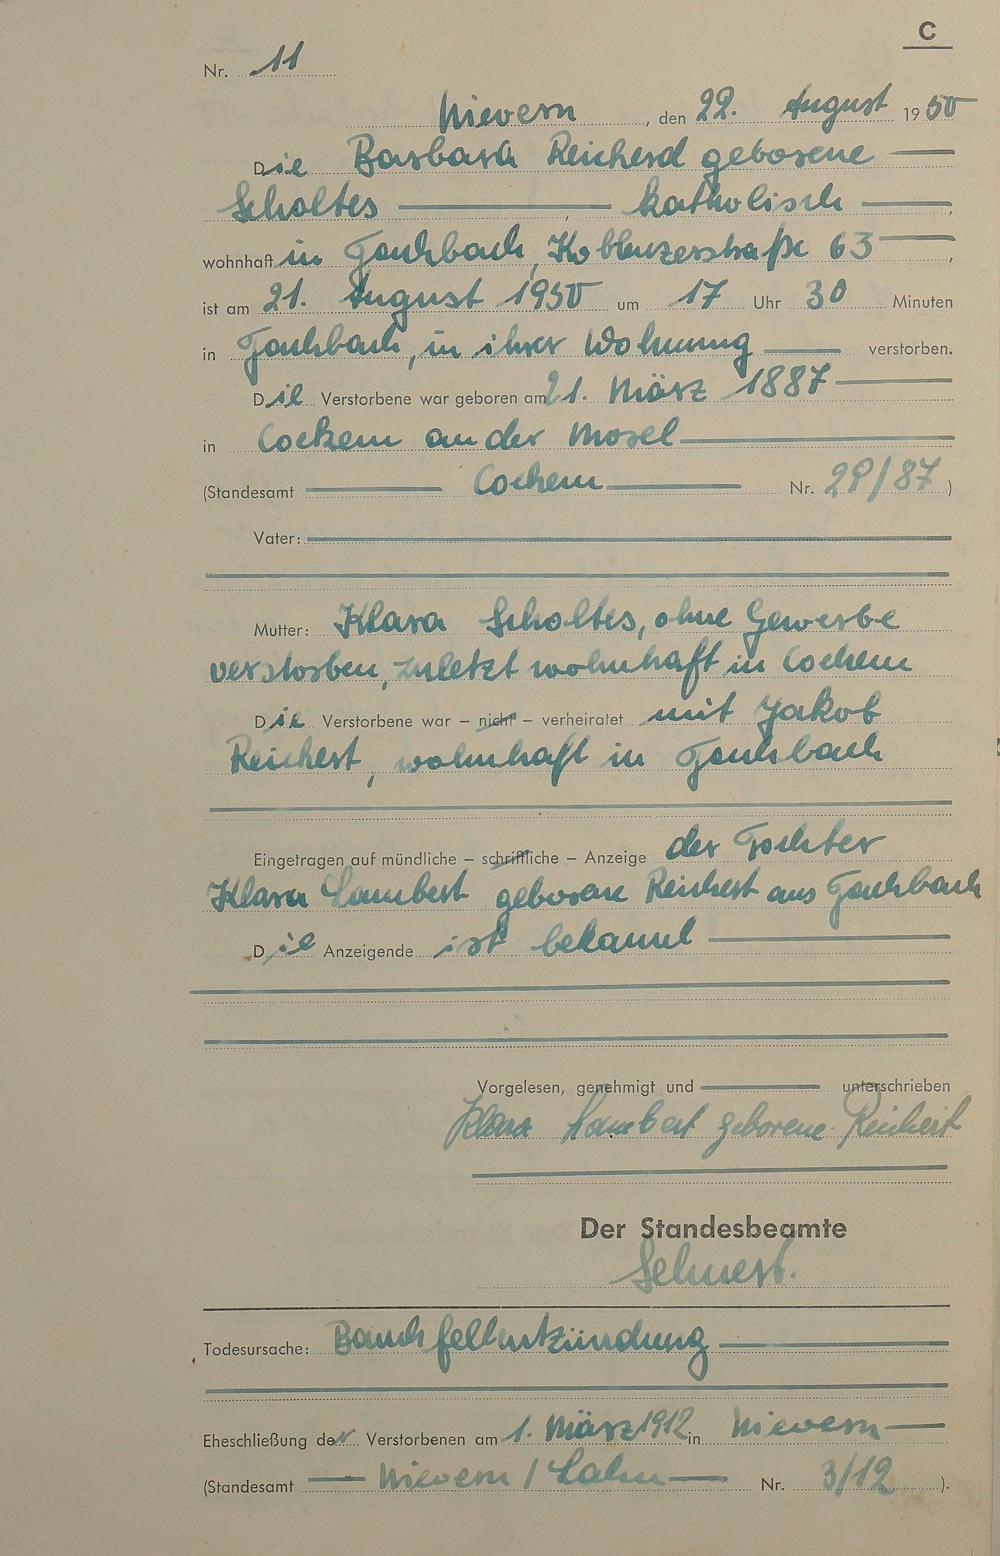 C
Nr. 11
Nievern, den 22. August 1950
Die Barbara Reicherd geborene
Scholtes katholisch
wohnhaft in Fachbach, Koblenzerstraße 63
ist am 21. August 1950 um 17 Uhr 30 Minuten
in Fachbach, in ihrer Wohnung verstorben.
Die Verstorbene war geboren am 21. März 1887
in Cochem an der Mosel
(Standesamt Cochem Nr. 29/87)
Vater:
Mutter: Klara Scholtes, ohne Gewerbe
verstorben, zuletzt wohnhaft in Cochem
Die Verstorbene war – nicht – verheiratet mit Jakob
Reichert, wohnhaft in Fachbach
Eingetragen auf mündliche – schriftliche – Anzeige der Tochter
Klara Lambert geborene Reichert aus Fachbach
Die Anzeigende ist bekannt
Vorgelesen, genehmigt und unterschrieben
Klara Lambert geborene Reichert
Der Standesbeamte
Todesursache: Bauchfellentzündung
Eheschließung der Verstorbenen am 1. März 1912 in Nievern
(Standesamt Nievern / Lahn Nr. 3/12 ).